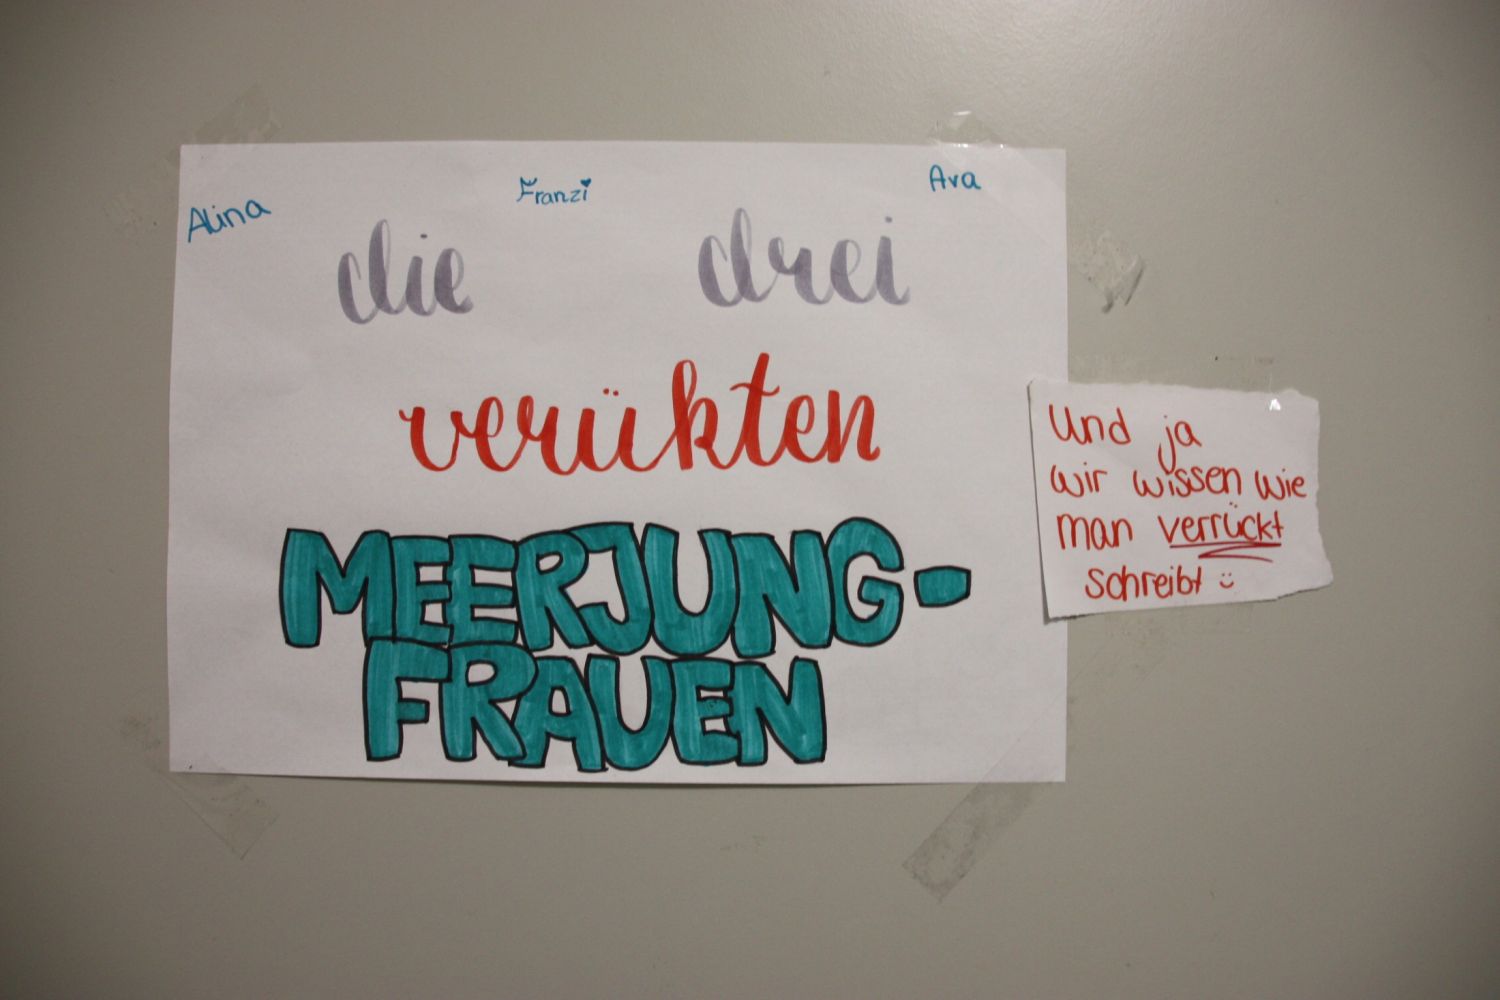 Alina Franzi Ava
die drei
verükten
MEERJUNG-
FRAUEN
Und ja
wir wissen wie
man verrückt
schreibt :)